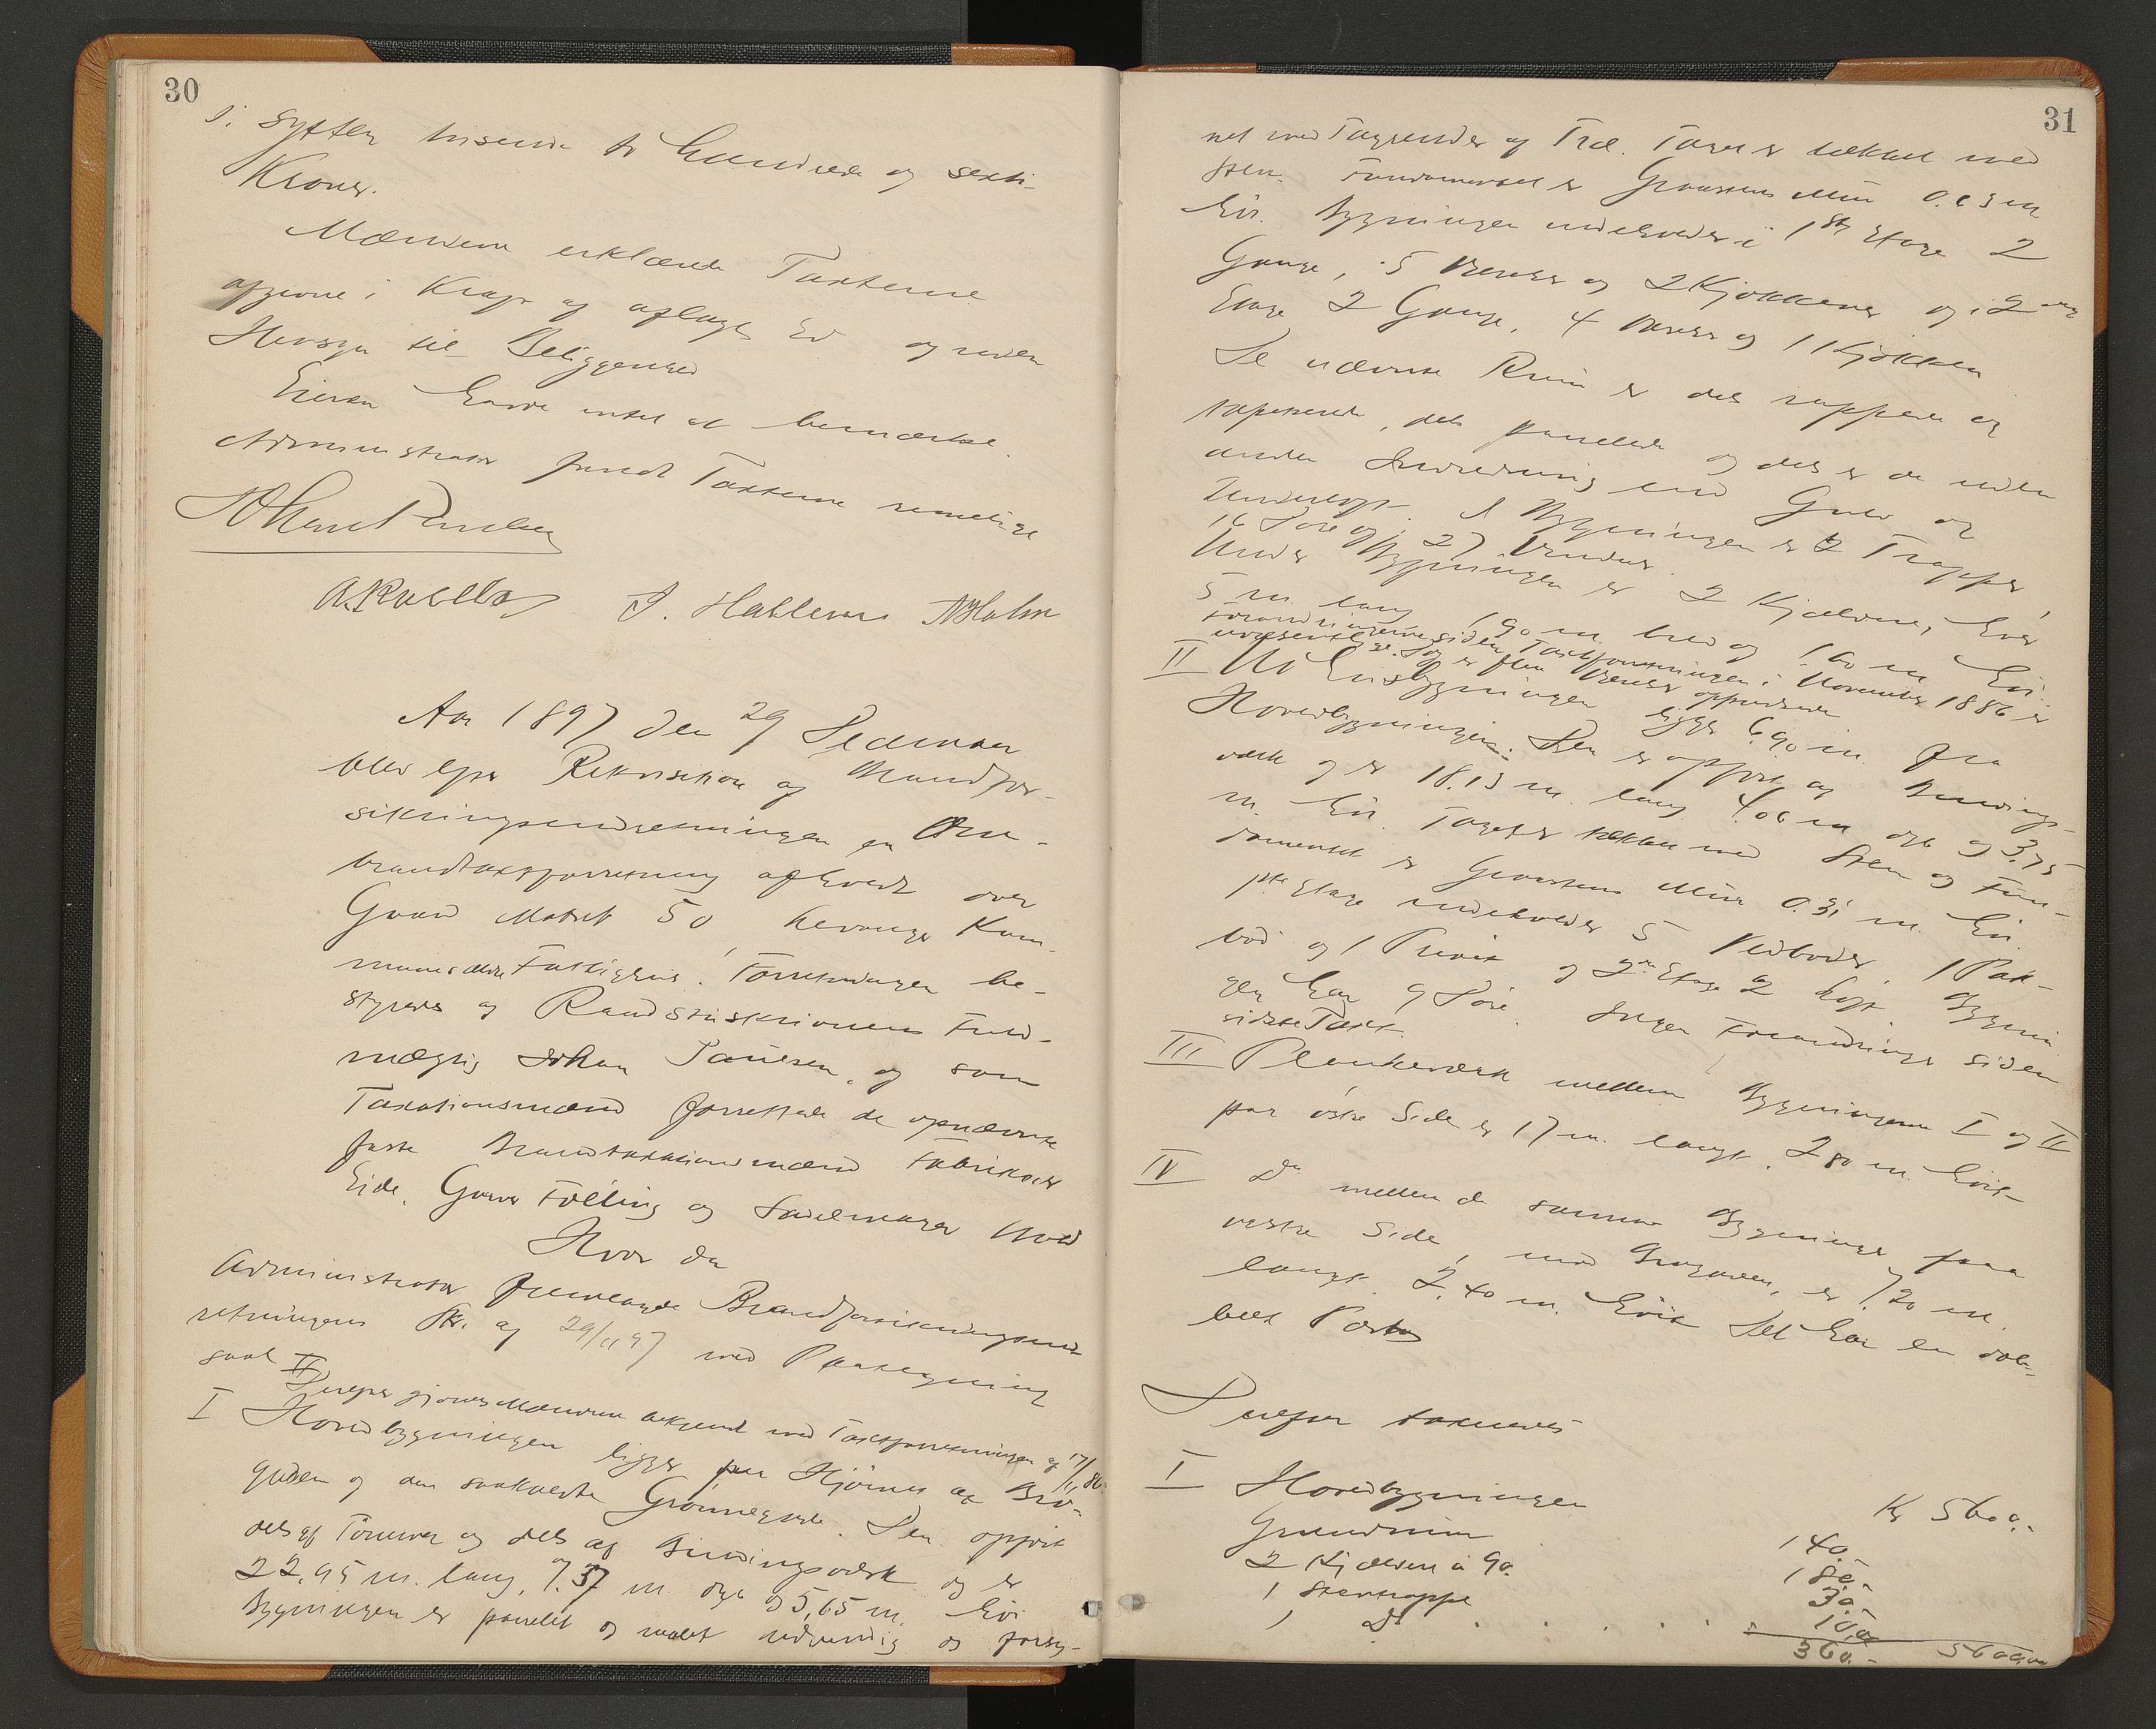 30
Sytten tusende to hundrede og sexti
Kroner.
Mændene erklærede Taxterne
afgivne i Kraft af aflagt Ed og uden
Hensyn til Beliggenhed
Eieren havde intet at bemærke.
Administrator fandt Taxterne rimelige
J. Hallevar A Holm
Aar 1897 den 29 December
blev efter Rekvisition af Brandfor-
sikringsindretningen en Om-
brandtaxtforretning afholdt over
Gaard Matrik 50 Levanger Kom-
munes ældre Fattighus. Forretningen be-
styredes af Raadstuskriverens Fuld-
mægtig Johan Paulsen, og som
Taxationsmænd forrettede de opnævnte
faste Brandtaxationsmænd Fabrikeier
Eide, Garver Følling og Sadelmager
Hvor da
Administrator fremlagde Brandforsikringsind-
retningens Skr. af 29/11 97 med Paategning
saal
Derefter gjordes Mændene bekjendt med Taxtforretningen af 17/11 86.
I Hovedbygningen ligger paa Hjørnet af Bro-
gaden og den saakaldte Grønnegade. Den opført
dels af Tømmer og dels af Bindingsværk og er
22,95 m. lang, 7.37 m. dyb og 5,65 m. høi
Bygningen er panelet og malet udvendig og forsy-
31
net med Tagrender af Træ. Taget er tækket med
Sten. Fundamentet er Graastens Mur 0.63 m
høi. Bygningen indeholder i 1ste Etage 2
Gange, 5 Værelser og 2 Kjøkkener og i 2den
Etage 2 Gange, 4 Værelser og 1 Kjøkken
De nævnte Rum er dels rappede og
tapetserede, dels panelede og dels er de uden
anden Indredning end Gulv og
Underloft. I Bygningen er 2 Trapper,
16 Døre og 27 Vinduer.
Under Bygningen er 2 Kjældere, hver
5 m. lang 1.90 m. bred og 1.60 m høi.
Forandringerne siden Taxtforretningen i November 1886 er
uvæsentlige. Dog er flere Værelser oppudsede
II Udhusbygningen ligger 6.90 m. fra
Hovedbygningen. Den er opført af Bindings-
værk og er 18.13 m. lang 4.06 m dyb og 3.75
m. høi. Taget er tækket med Sten og Fun-
damentet er Graastens Mur 0.31 m. høi.
1ste Etage indeholder 5 Vedboder, 1 Pak-
bod og 1 Privet og 2den Etage 2 Loft. Bygnin
gen har 9 Døre. Ingen Forandringer siden
sidste Taxt.
III Plankeværk mellem Bygningerne I og II
paa østre Side er 17 m. langt, 2.80 m. høit
IV Do mellem de samme Bygninger paa
vestre Side, mod Brogaden, er 7.20 m.
langt, 2.40 m. høit Det har en dob-
belt Port
Derefter taxeredes
I Hovedbygningen Kr 5600.-
Grundmur 140.-
2 Kjældere à 90. 180.-
1 Stentrappe 30.-
1 Do . . . . . 10,00
360.- 5600,00